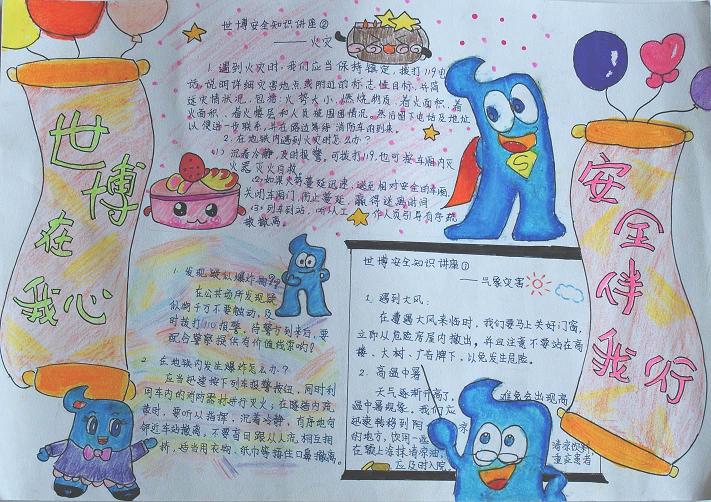 世博在我心
世博安全知识讲座②
——火灾
1.遇到火灾时，我们应当保持镇定，拨打119电
话，说明详细灾害地点或附近的标志性目标，并简
述灾情状况，包括：火势大小、燃烧物质、着火面积、着
火面积、着火楼层和人员被困围情况。然后留下电话及地址
以便进一步联系，并在路边等待消防车的到来。
2.在地铁内遇到火灾时怎么办？
(1)沉着冷静，及时报警，可拨打119，也可按车厢内灭
火器灭火自救
(2)如果火势蔓延迅速，逃至相对安全的车厢，
关闭车厢门，防止蔓延，赢得逃离时间
(3)列车到站，听从工作人员引导有序疏
散撤离。
1.发现疑似爆炸物
在公共场所发现疑
似物千万不要触动，及
时拨打110报警，待警方到来后，要
配合警察提供有价值线索哟！
2.在地铁内发生爆炸怎么办？
应当迅速按下列车报警按钮，同时利
用车内的消防器材进行灭火；在隧道内疏
散时，要听从指挥，沉着冷静，有序地向
邻近车站撤离，不要盲目跟从人流，相互拥
挤，适当用衣物、纸巾等捂住口鼻撤离。
世博安全知识讲座①
——气象灾害
1.遇到大风：
在遭遇大风来临时，我们要马上关好门窗，
立即从危险房屋内撤出，并且注意不要站在高
楼、大树、广告牌下，以免发生危险。
2.高温中暑
天气逐渐升高了，难免会出现高
温中暑现象，我们应
迅速转移到阴凉
的地方，饮用一些清凉饮料，
在额上涂抹清凉油，重症患者
应及时入院
安全伴我行